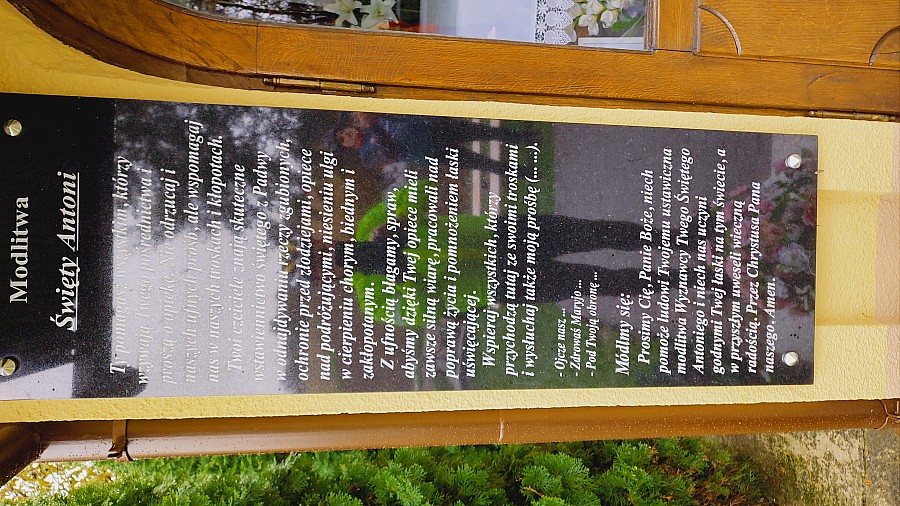 Modlitwa
Święty Antoni
Ty pomagasz wszystkim, którzy
wzywają Twego pośrednictwa i
proszą o opiekę. Nie odtrzucaj i
naszych ufnych próśb, ale wspomagaj
nas w naszych troskach i kłopotach.
Twoi czciciele znają skuteczne
wstawiennictwo świętego z Padwy
w odnajdywaniu rzeczy zgubionych,
ochronie przed złodziejami, opiece
nad podróżującymi, niesieniu ulgi
w cierpieniu chorym, biednym i
zakłopotanym.
Z ufnością błagamy, spraw
abyśmy dzięki Twej opiece mieli
zawsze silną wiarę, pracowali nad
poprawą życia i pomnożeniem łaski
uświęcającej.
Wspieraj wszystkich, którzy
przychodzą tutaj ze swoimi troskami
i wysłuchaj także moją prośbę (... ...).
- Ojcze nasz ...
- Zdrowaś Maryjo ...
- Pod Twoją obronę ...
Módlmy się:
Prosimy Cię, Panie Boże, niech
pomoże ludowi Twojemu ustawiczna
modlitwa Wyznawcy Twego Świętego
Antoniego i niech nas uczyni
godnymi Twej łaski na tym świecie, a
w przyszłym uweseli wieczną
radością. Przez Chrystusa Pana
naszego. Amen.